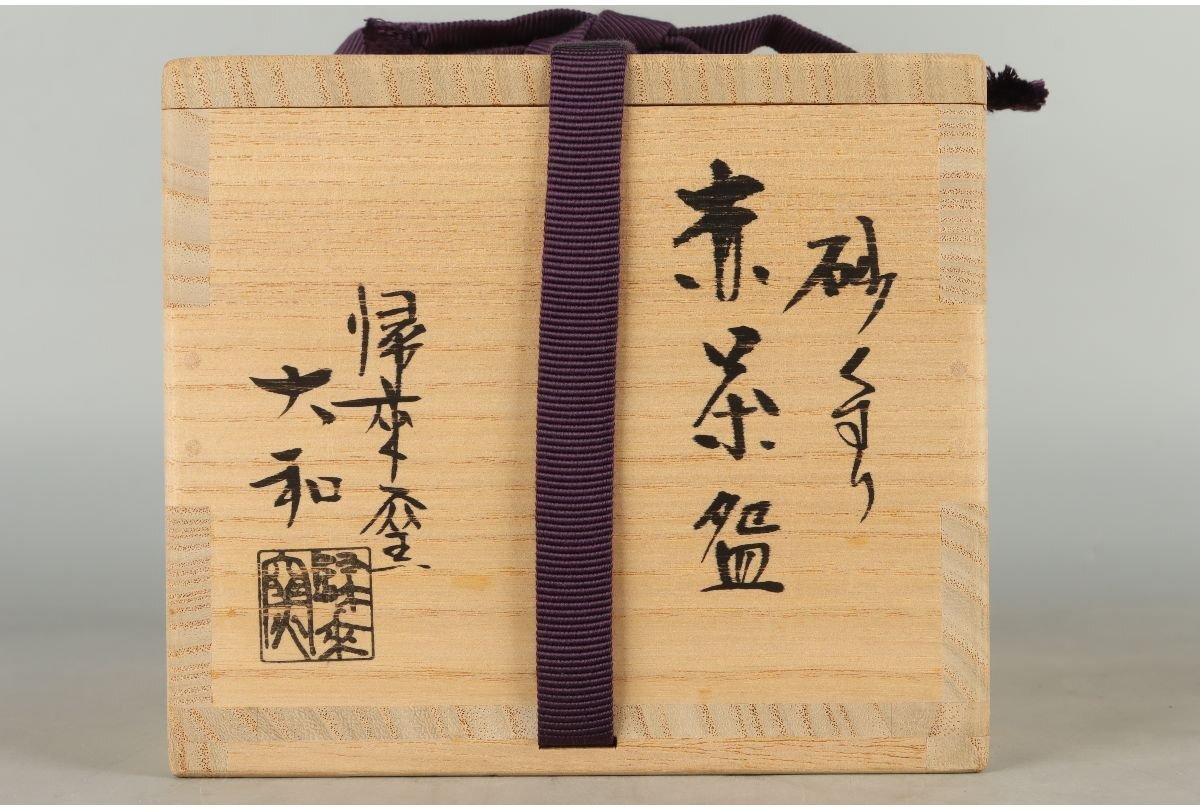 砂くすり
赤茶盌
帰来窯
大和